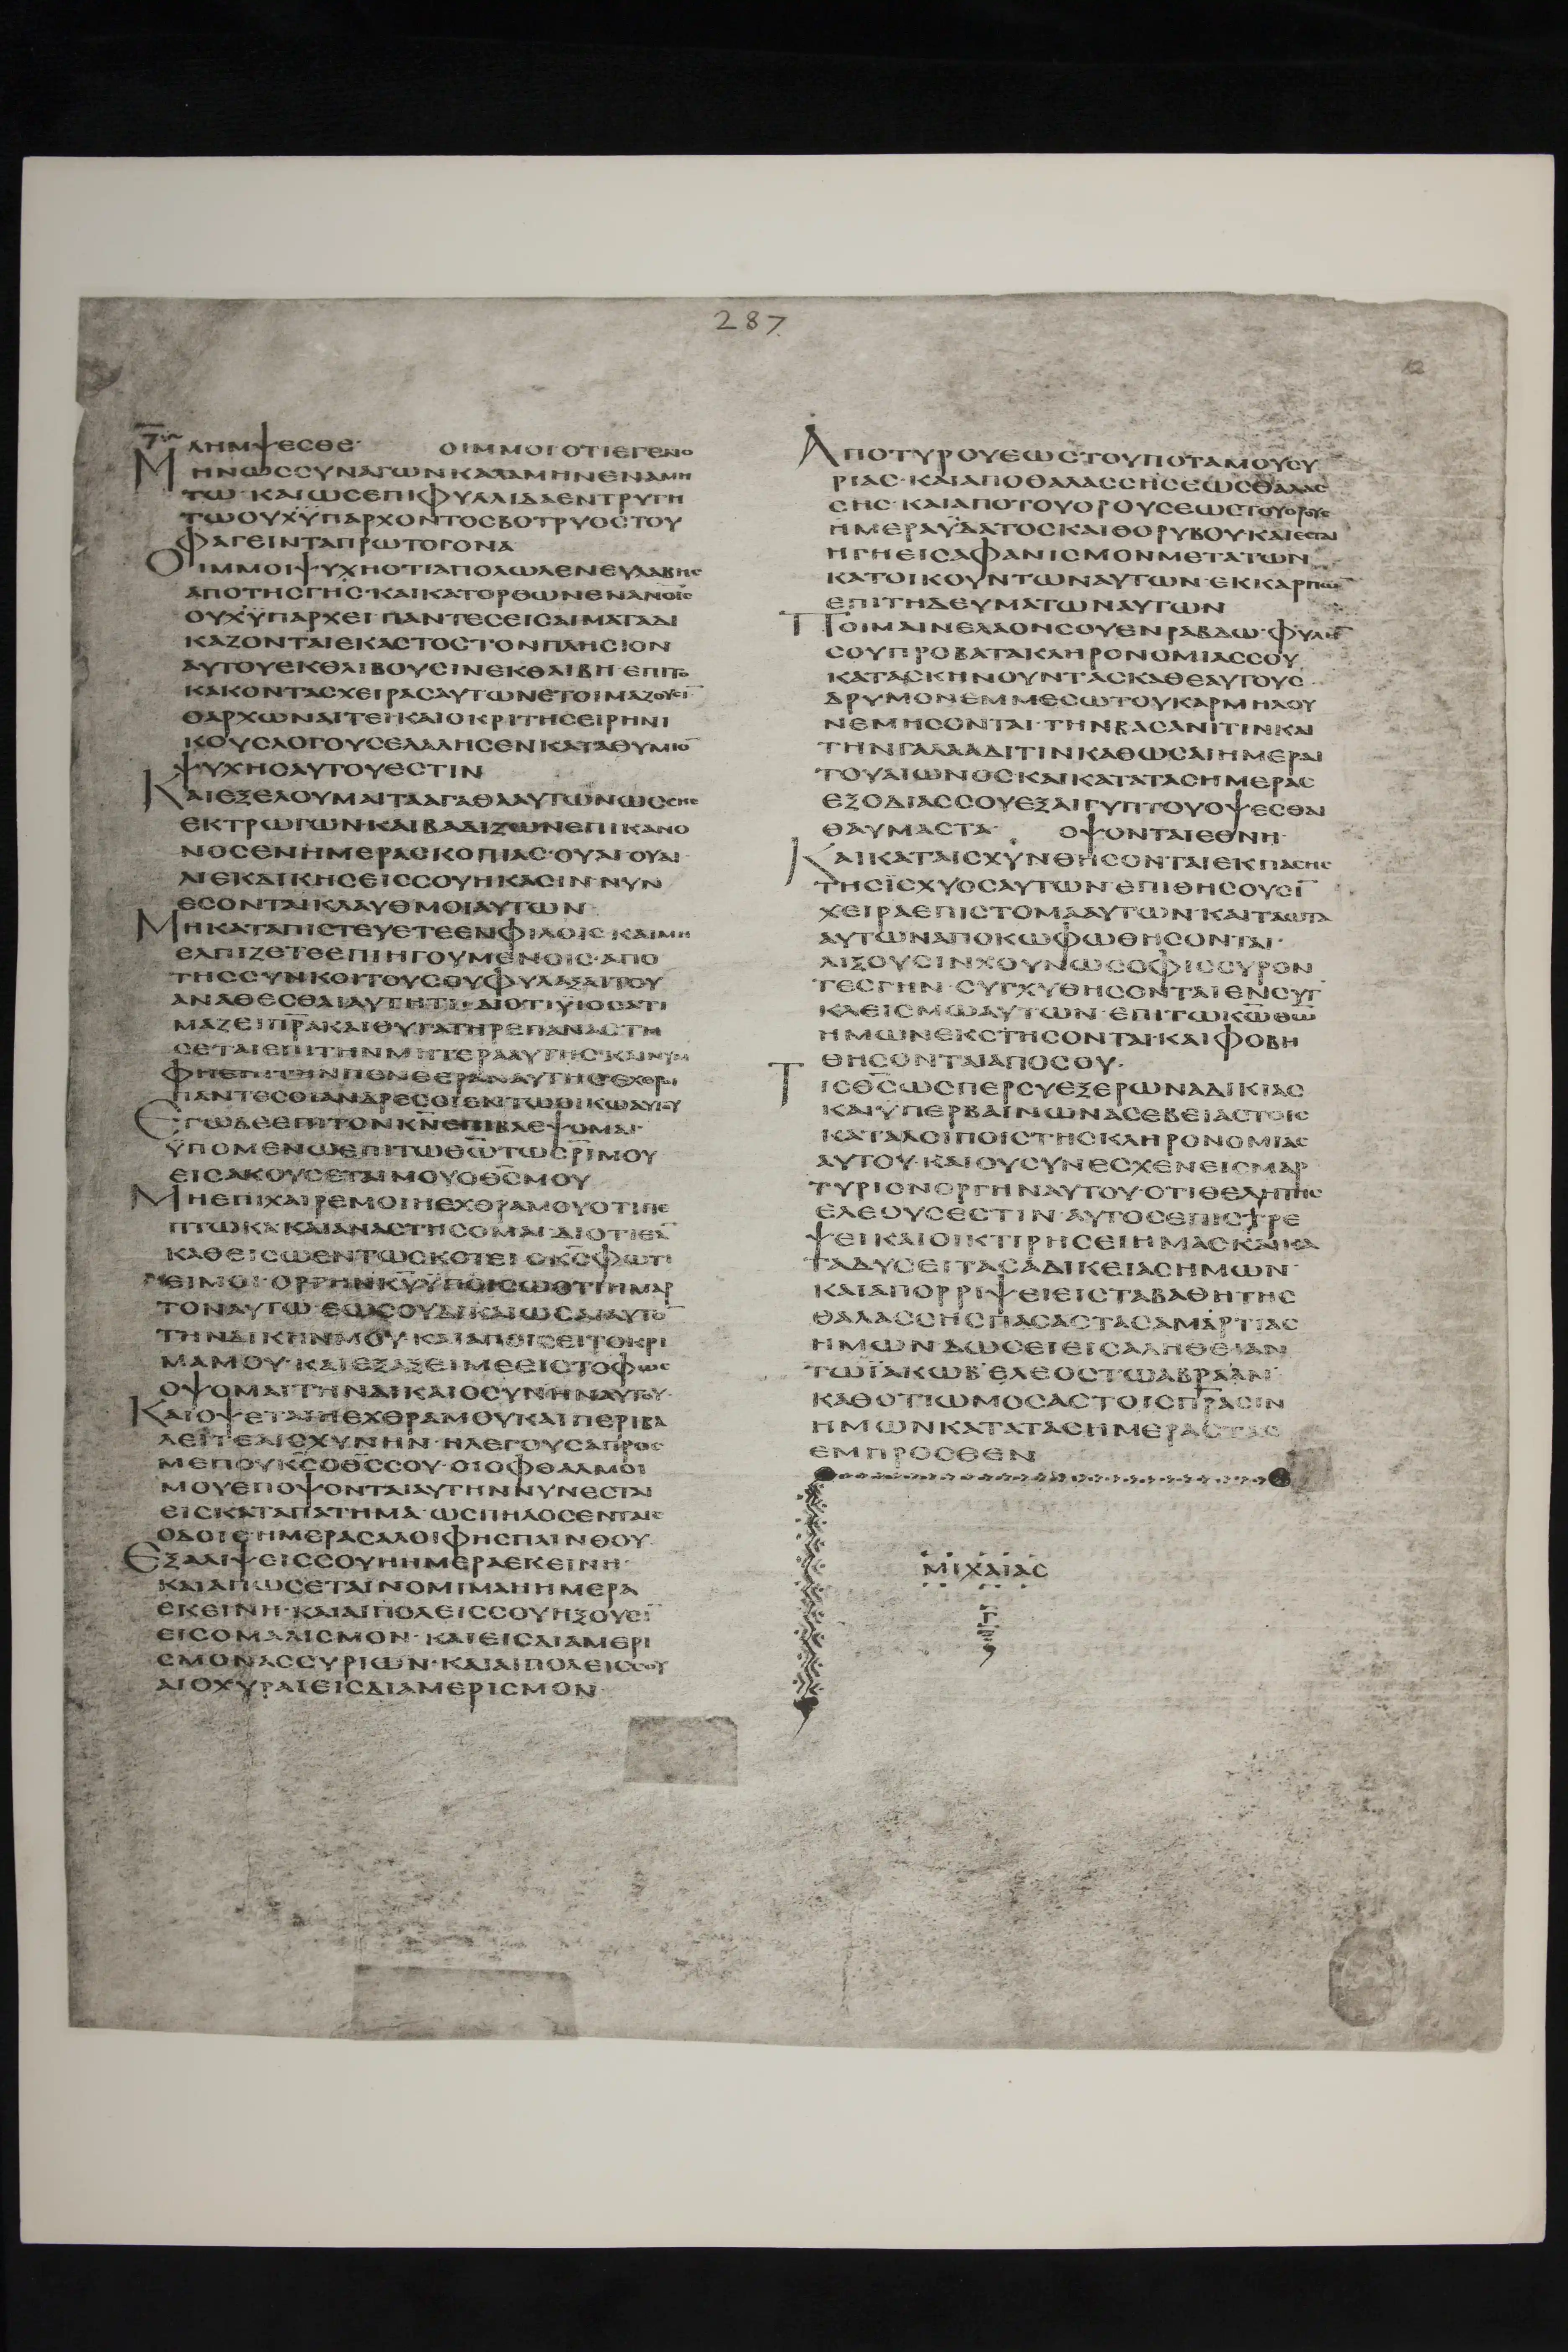 287
12
ΛΗΜΨΕСΘΕ· ΟΙΜΜΟΙΟΤΙΕΓΕΝΟ
ΜΗΝΩССΥΝΑΓΩΝΚΑΛΑΜΗΝΕΝΑΜΗ
ΤΩ·ΚΑΙΩСΕΠΙΦΥΛΛΙΔΑΕΝΤΡΥΓΗ
ΤΩΟΥΧΫΠΑΡΧΟΝΤΟСΒΟΤΡΥΟСΤΟΥ
ΦΑΓΕΙΝΤΑΠΡΩΤΟΓΟΝΑ
ΟΙΜΜΟΙΨΥΧΗΟΤΙΑΠΟΛΩΛΕΝΕΥΛΑΒΗС
ΑΠΟΤΗСΓΗС·ΚΑΙΚΑΤΟΡΘΩΝΕΝΑΝΟΙС
ΟΥΧΫΠΑΡΧΕΙ·ΠΑΝΤΕСΕΙСΑΙΜΑΤΑΔΙ
ΚΑΖΟΝΤΑΙΕΚΑСΤΟСΤΟΝΠΛΗСΙΟΝ
ΑΥΤΟΥΕΚΘΛΙΒΟΥСΙΝΕΚΘΛΙΒΗ·ΕΠΙΤΟ
ΚΑΚΟΝΤΑСΧΕΙΡΑСΑΥΤΩΝΕΤΟΙΜΑΖΟΥСΙ̅
ΟΑΡΧΩΝΑΙΤΕΙΚΑΙΟΚΡΙΤΗСΕΙΡΗΝΙ
ΚΟΥСΛΟΓΟΥСΕΛΑΛΗСΕΝΚΑΤΑΘΥΜΙΟ̅
ΨΥΧΗСΑΥΤΟΥΕСΤΙΝ
ΚΑΙΕΞΕΛΟΥΜΑΙΤΑΑΓΑΘΑΑΥΤΩΝΩССΗС
ΕΚΤΡΩΓΩΝ·ΚΑΙΒΑΔΙΖΩΝΕΠΙΚΑΝΟ
ΝΟСΕΝΗΜΕΡΑСΚΟΠΙΑС·ΟΥΑΙ·ΟΥΑΙ·
ΑΙΕΚΔΙΚΗСΕΙССΟΥΗΚΑСΙΝ·ΝΥΝ
ΕСΟΝΤΑΙΚΛΑΥΘΜΟΙΑΥΤΩΝ·
ΜΗΚΑΤΑΠΙСΤΕΥΕΤΕΕΝΦΙΛΟΙС·ΚΑΙΜΗ
ΕΛΠΙΖΕΤΕΕΠΙΗΓΟΥΜΕΝΟΙС·ΑΠΟ
ΤΗССΥΝΚΟΙΤΟΥСΟΥΦΥΛΑΞΑΙΤΟΥ
ΑΝΑΘΕСΘΑΙΑΥΤΗΤΙ·ΔΙΟΤΙΫΙΟСΑΤΙ
ΜΑΖΕΙΠ̅Ρ̅Α̅ΚΑΙΘΥΓΑΤΗΡΕΠΑΝΑСΤΗ
СΕΤΑΙΕΠΙΤΗΝΜΗΤΕΡΑΑΥΤΗС·ΚΑΙΝΥΜ
ΦΗΕΠΙΤΗΝΠΕΝΘΕΡΑΝΑΥΤΗС·ΕΧΘΡΟΙ
ΠΑΝΤΕСΟΙΑΝΔΡΕСΟΙΕΝΤΩΟΙΚΩΑΥΤΟΥ
ΕΓΩΔΕΕΠΙΤΟΝΚ̅Ν̅ΕΠΙΒΛΕΨΟΜΑΙ·
ΫΠΟΜΕΝΩΕΠΙΤΩΘ̅Ω̅ΤΩС̅Ρ̅ΙΜΟΥ
ΕΙСΑΚΟΥСΕΤΑΙΜΟΥΟΘ̅С̅ΜΟΥ
ΜΗΕΠΙΧΑΙΡΕΜΟΙΗΕΧΘΡΑΜΟΥΟΤΙΠΕ
ΠΤΩΚΑΚΑΙΑΝΑСΤΗСΟΜΑΙ·ΔΙΟΤΙΕΑ̅
ΚΑΘΕΙСΩΕΝΤΩСΚΟΤΕΙΟΚ̅С̅ΦΩΤΙ
ΕΙΜΟΙ·ΟΡΓΗΝΚ̅Υ̅ΫΠΟΙСΩΟΤΙΗΜΑΡ
ΤΟΝΑΥΤΩ·ΕΩСΟΥΔΙΚΑΙΩСΑΙΑΥΤΟ̅
ΤΗΝΔΙΚΗΝΜΟΥ·ΚΑΙΑΠΟΙСΕΙΤΟΚΡΙ
ΜΑΜΟΥ·ΚΑΙΕΞΑΞΕΙΜΕΕΙСΤΟΦΩС
ΟΨΟΜΑΙΤΗΝΔΙΚΑΙΟСΥΝΗΝΑΥΤΟΥ·
ΚΑΙΟΨΕΤΑΙΗΕΧΘΡΑΜΟΥΚΑΙΠΕΡΙΒΑ
ΛΕΙΤΕΑΙСΧΥΝΗΝ·ΗΛΕΓΟΥСΑΠΡΟС
ΜΕΠΟΥΚ̅С̅ΟΘ̅С̅СΟΥ·ΟΙΟΦΘΑΛΜΟΙ
ΜΟΥΕΠΟΨΟΝΤΑΙΑΥΤΗΝΝΥΝΕСΤΑΙ
ΕΙСΚΑΤΑΠΑΤΗΜΑ·ΩСΠΗΛΟСΕΝΤΑΙС
ΟΔΟΙСΗΜΕΡΑСΑΛΟΙΦΗСΠΛΙΝΘΟΥ·
ΕΞΑΛΙΨΕΙССΟΥΗΗΜΕΡΑΕΚΕΙΝΗ·
ΚΑΙΑΠΩСΕΤΑΙΝΟΜΙΜΑΗΗΜΕΡΑ
ΕΚΕΙΝΗ·ΚΑΙΑΙΠΟΛΕΙССΟΥΗΞΟΥСΙ̅
ΕΙСΟΜΑΛΙСΜΟΝ·ΚΑΙΕΙСΔΙΑΜΕΡΙ
СΜΟΝΑССΥΡΙΩΝ·ΚΑΙΑΙΠΟΛΕΙССΟΥ
ΑΙΟΧΥΡΑΙΕΙСΔΙΑΜΕΡΙСΜΟΝ·
ΑΠΟΤΥΡΟΥΕΩСΤΟΥΠΟΤΑΜΟΥСΥ
ΡΙΑС·ΚΑΙΑΠΟΘΑΛΑССΗСΕΩСΘΑΛΑС
СΗС·ΚΑΙΑΠΟΤΟΥΟΡΟΥСΕΩСΤΟΥΟΡΟΥС
ΗΜΕΡΑΫΔΑΤΟСΚΑΙΘΟΡΥΒΟΥ·ΚΑΙΕСΤΑΙ
ΗΓΗΕΙСΑΦΑΝΙСΜΟΝΜΕΤΑΤΩΝ
ΚΑΤΟΙΚΟΥΝΤΩΝΑΥΤΩΝ·ΕΚΚΑΡΠΩ̅
ΕΠΙΤΗΔΕΥΜΑΤΩΝΑΥΤΩΝ
ΠΟΙΜΑΙΝΕΛΑΟΝСΟΥΕΝΡΑΒΔΩ·ΦΥΛΗΣ
СΟΥΠΡΟΒΑΤΑΚΛΗΡΟΝΟΜΙΑССΟΥ
ΚΑΤΑСΚΗΝΟΥΝΤΑСΚΑΘΕΑΥΤΟΥС·
ΔΡΥΜΟΝΕΜΜΕСΩΤΟΥΚΑΡΜΗΛΟΥ
ΝΕΜΗСΟΝΤΑΙ·ΤΗΝΒΑСΑΝΙΤΙΝΚΑΙ
ΤΗΝΓΑΛΑΑΔΙΤΙΝΚΑΘΩСΑΙΗΜΕΡΑΙ
ΤΟΥΑΙΩΝΟСΚΑΙΚΑΤΑΤΑСΗΜΕΡΑС
ΕΞΟΔΙΑССΟΥΕΞΑΙΓΥΠΤΟΥΟΨΕСΘΑΙ
ΘΑΥΜΑСΤΑ· ΟΨΟΝΤΑΙΕΘΝΗ·
ΚΑΙΚΑΤΑΙСΧΥΝΘΗСΟΝΤΑΙΕΚΠΑСΗС
ΤΗСΪСΧΥΟСΑΥΤΩΝ·ΕΠΙΘΗСΟΥСΙ̅
ΧΕΙΡΑΕΠΙСΤΟΜΑΑΥΤΩΝ·ΚΑΙΤΑΩΤΑ
ΑΥΤΩΝΑΠΟΚΩΦΩΘΗСΟΝΤΑΙ·
ΛΙΞΟΥСΙΝΧΟΥΝΩСΟΦΙССΥΡΟΝ
ΤΕСΓΗΝ·СΥΓΧΥΘΗСΟΝΤΑΙΕΝСΥΓ
ΚΛΕΙСΜΩΑΥΤΩΝ·ΕΠΙΤΩΚ̅Ω̅Θ̅Ω̅
ΗΜΩΝΕΚСΤΗСΟΝΤΑΙ·ΚΑΙΦΟΒΗ
ΘΗСΟΝΤΑΙΑΠΟСΟΥ·
ΤΙСΘ̅С̅ΩСΠΕΡСΥΕΞΕΡΩΝΑΔΙΚΙΑС
ΚΑΙΫΠΕΡΒΑΙΝΩΝΑСΕΒΕΙΑСΤΟΙС
ΚΑΤΑΛΟΙΠΟΙСΤΗСΚΛΗΡΟΝΟΜΙΑС
ΑΥΤΟΥ·ΚΑΙΟΥСΥΝΕСΧΕΝΕΙСΜΑΡ
ΤΥΡΙΟΝΟΡΓΗΝΑΥΤΟΥ·ΟΤΙΘΕΛΗΤΗС
ΕΛΕΟΥСΕСΤΙΝ·ΑΥΤΟСΕΠΙСΤΡΕ
ΨΕΙΚΑΙΟΙΚΤΙΡΗСΕΙΗΜΑСΚΑΙΚΑ
ΤΑΔΥСΕΙΤΑСΑΔΙΚΕΙΑСΗΜΩΝ·
ΚΑΙΑΠΟΡΡΙΨΕΙΕΙСΤΑΒΑΘΗΤΗС
ΘΑΛΑССΗСΠΑСΑСΤΑСΑΜΑΡΤΙΑС
ΗΜΩΝ·ΔΩСΕΙΕΙСΑΛΗΘΕΙΑΝ
ΤΩΪΑΚΩΒ·ΕΛΕΟСΤΩΑΒΡΑΑΜ·
ΚΑΘΟΤΙΩΜΟСΑСΤΟΙСΠ̅Ρ̅ΑСΙΝ
ΗΜΩΝΚΑΤΑΤΑСΗΜΕΡΑСΤΑС
ΕΜΠΡΟСΘΕΝ
ΜΙΧΑΙΑС
Γ